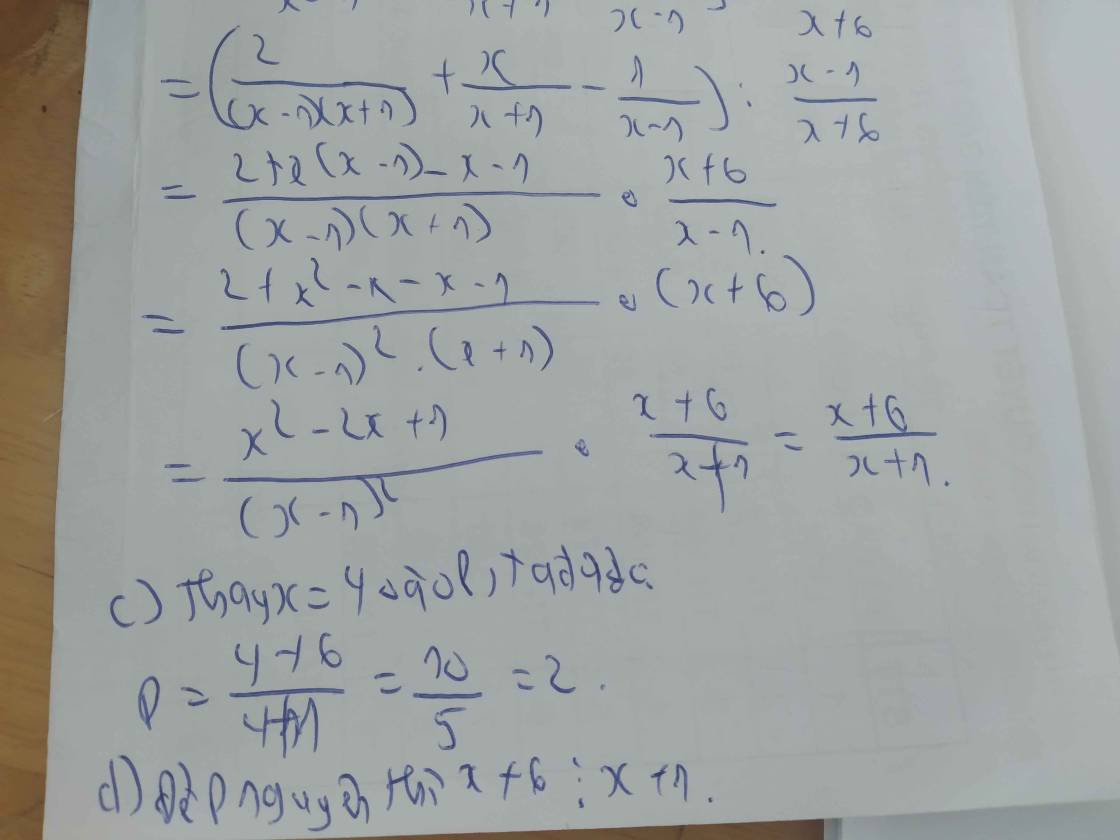 x+1 x-1 x+6
= (2/((x-1)(x+1)) + x/(x+1) - 1/(x-1)) : (x-1)/(x+6)
= (2+x(x-1)-x-1)/((x-1)(x+1)) . (x+6)/(x-1).
= (2+x²-x-x-1)/((x-1)².(x+1)) . (x+6)
= (x²-2x+1)/(x-1)² . (x+6)/(x+1) = (x+6)/(x+1).
c) Thay x=4 vào P, ta được
P = (4+6)/(4+1) = 10/5 = 2.
d) Để P nguyên thì x+6 ⋮ x+1.